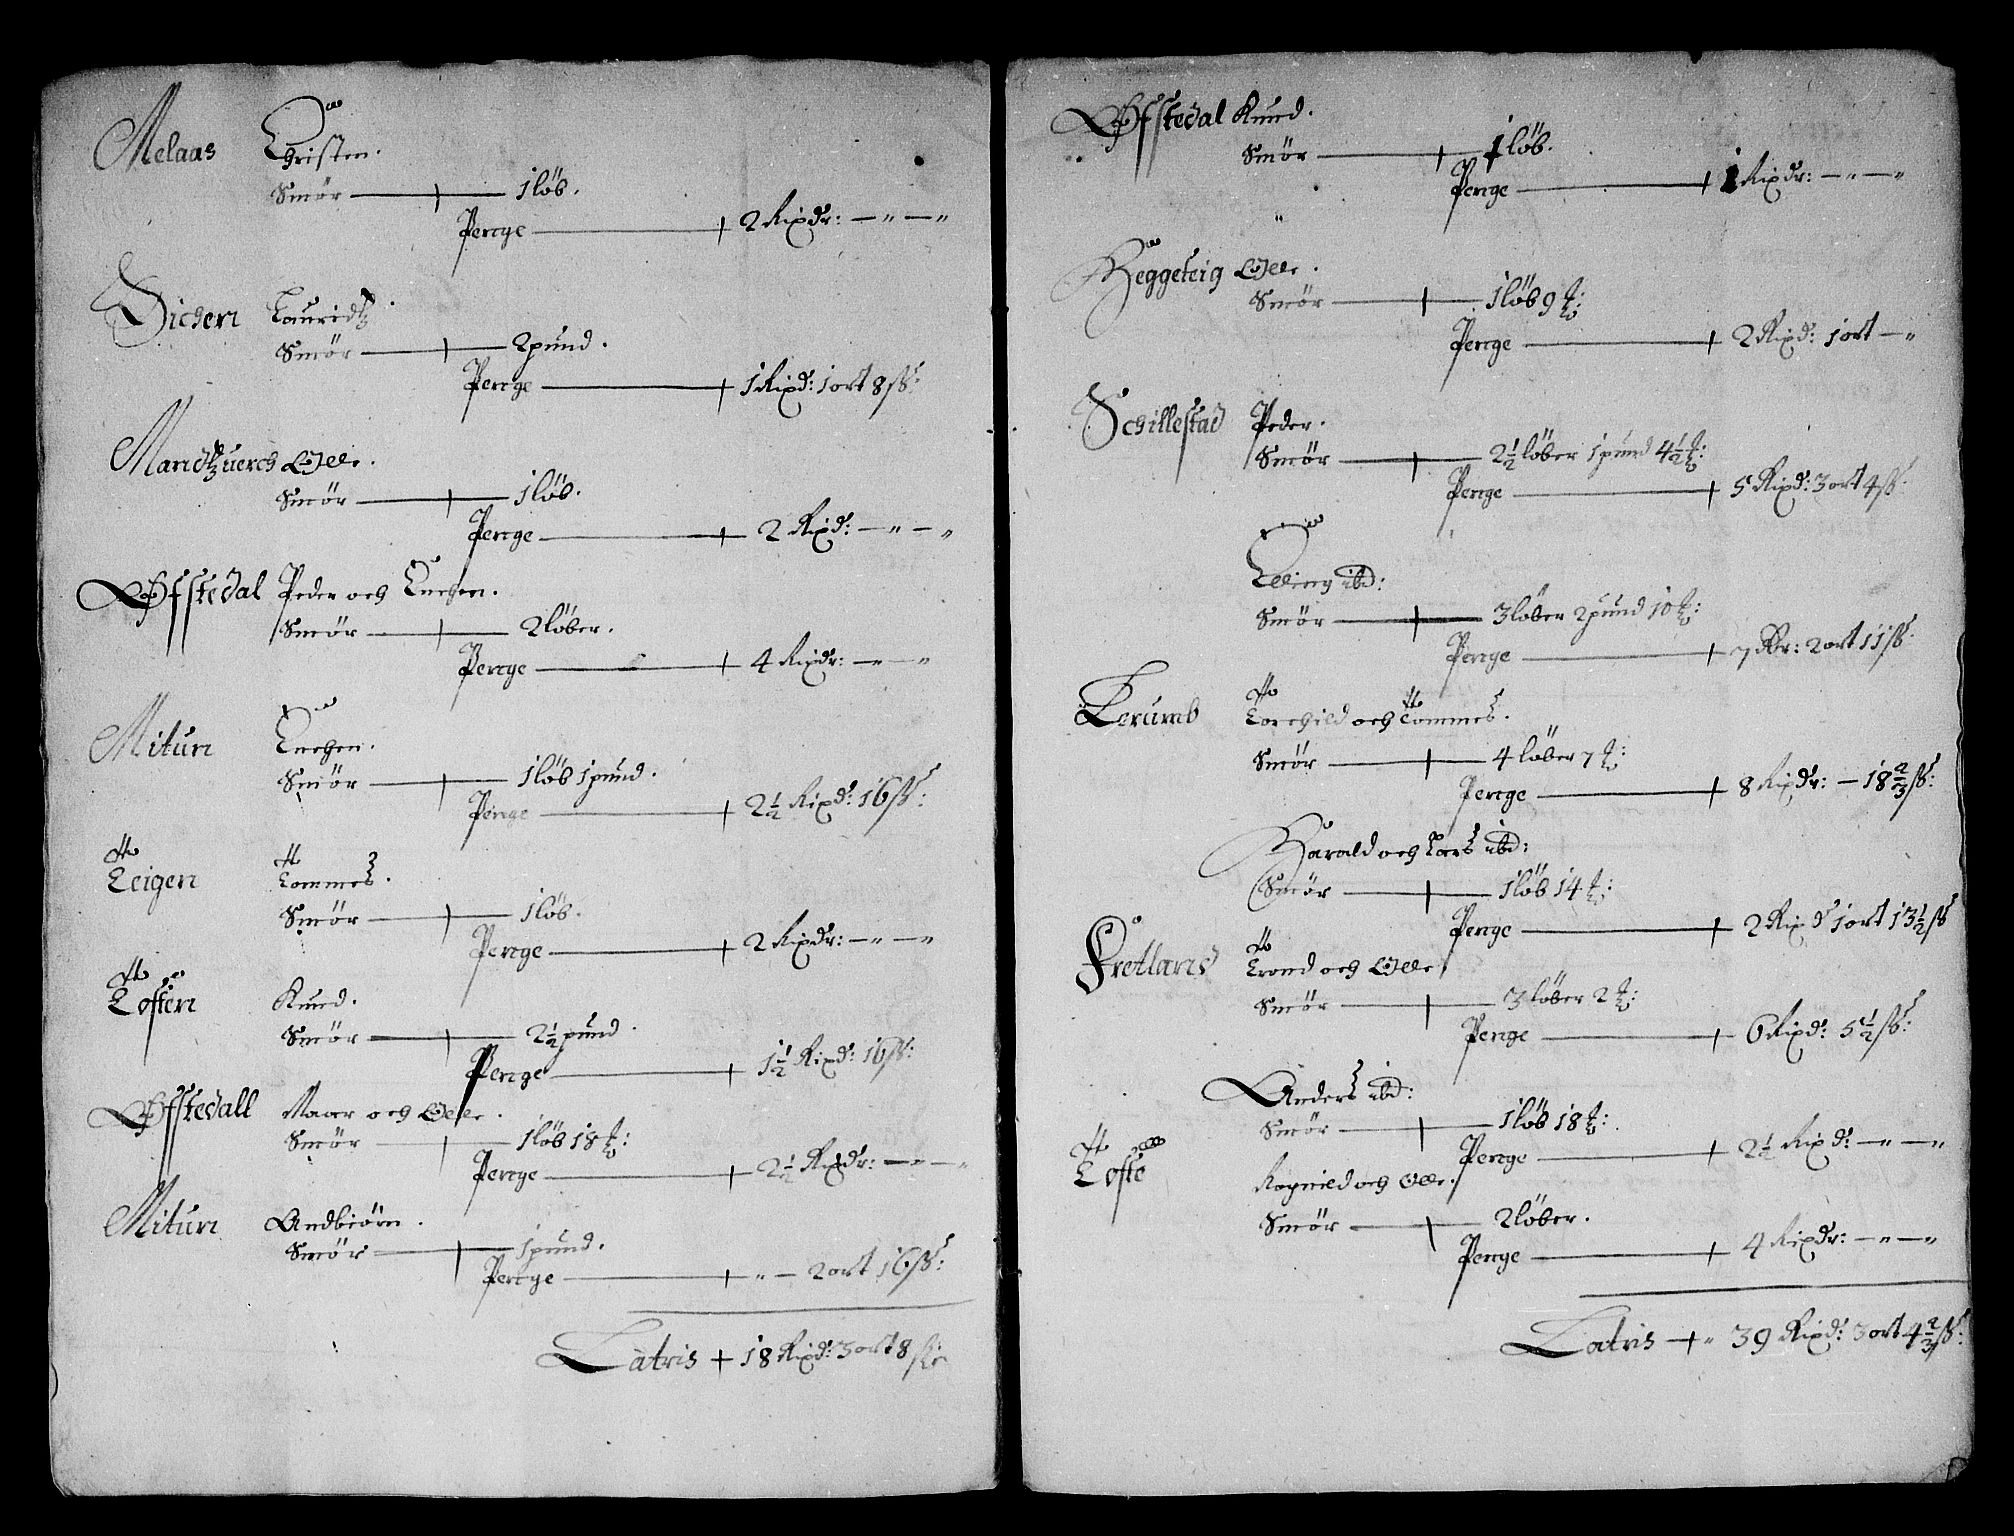 Melaas Christen.
Smör — 1 löb.
Penge — 2 Rixdr: — " — "
Dichen Lauridtz.
Smör — 2 pund.
Penge — 1 Rixd: 1 ort 8 ſſ:
Mandtzuerch Olle.
Smör — 1 löb.
Penge — 2 Rixd: — " — "
Øfstedal Peder och Knchen.
Smör — 2 löber.
Penge — 4 Rixdr: — " — "
Mitun Knchen.
Smör — 1 löb 1 pund.
Penge — 2½ Rixd: 16 ſſ:
Teigen Tommes.
Smör — 1 löb.
Penge — 2 Rixdr: — " — "
Tøften Knud.
Smör — 2½ pund.
Penge — 1½ Rixd: 16 ſſ:
Øfstedall Maar och Olle.
Smör — 1 löb 18 ℔:
Penge — 2½ Rixdr: — " — "
Mitun Andbiörn.
Smör — 1 pund.
Penge — " — 2 ort 16 ſſ:
Latris + 18 Rixd: 3 ort 8 ſk
Øfstedal Knud.
Smör — 1 löb.
Penge — 1 Rixdr: — " — "
Heggeteig Olle.
Smör — 1 löb 9 ℔:
Penge — 2 Rixd: 1 ort — "
Schillestad Peder.
Smör — 2½ löber 1 pund 4½ ℔:
Penge — 5 Rixd: 3 ort 4 ſſ.
Elling ibd:
Smör — 3 löber 2 pund 10 ℔:
Penge — 7 Rdr: 2 ort 11 ſſ.
Lerumb Torchild och Tommes.
Smör — 4 löber 7 ℔:
Penge — 8 Rixdr: — 18⅔ ſſ:
Harald och Lars ibd:
Smör — 1 löb 14 ℔:
Penge — 2 Rixd 1 ort 13½ ſſ
Fretland Trond och Olle
Smör — 3 löber 2 ℔:
Penge — 6 Rixd: 5½ ſſ:
Anders ibd:
Smör — 1 löb 18 ℔:
Penge — 2½ Rixd: — " — "
Tøfte Rognild och Olle.
Smör — 2 löber.
Penge — 4 Rixdr: — " — "
Latris — + " 39 Rixd: 3 ort 4⅔ ſſ: